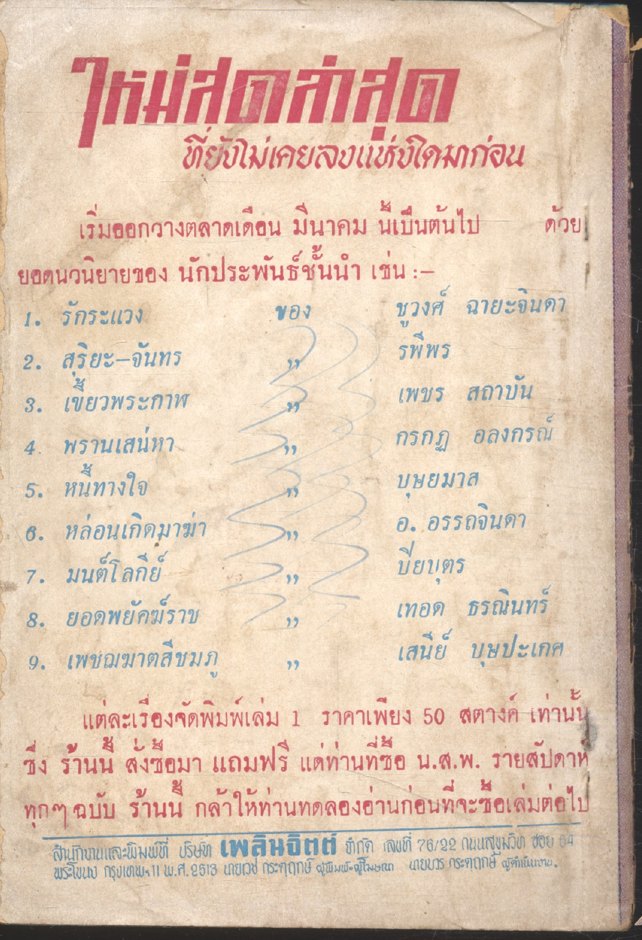 ใหม่สดล่าสุด
ที่ยังไม่เคยลงแห่งใดมาก่อน
เริ่มออกวางตลาดเดือน มีนาคม นี้เป็นต้นไป ด้วย
ยอดนวนิยายของ นักประพันธ์ชั้นนำ เช่น :—
1. รักระแวง ของ ชูวงศ์ ฉายะจินดา
2. สุริยะ—จันทร ,, รพีพร
3. เขี้ยวพระกาฬ ,, เพชร สถาบัน
4. พรานเสน่หา ,, กรกฏ อลงกรณ์
5. หนี้ทางใจ ,, บุษยมาส
6. หล่อนเกิดมาฆ่า ,, อ. อรรถจินดา
7. มนต์โลกีย์ ,, ปิยบุตร
8. ยอดพยัคฆ์ราช ,, เทอด ธรณินทร์
9. เพชฌฆาตสีชมภู ,, เสนีย์ บุษปะเกศ
แต่ละเรื่องจัดพิมพ์เล่ม 1 ราคาเพียง 50 สตางค์ เท่านั้น
ซึ่ง ร้านนี้ สั่งซื้อมา แถมฟรี แด่ท่านที่ซื้อ น.ส.พ. รายสัปดาห์
ทุกๆฉบับ ร้านนี้ กล้าให้ท่านทดลองอ่านก่อนที่จะซื้อเล่มต่อไป
สำนักงานและพิมพ์ที่ บริษัท เพลินจิตต์ จำกัด เลขที่ 76/22 ถนนสุขุมวิท ซอย 64
พระโขนง กรุงเทพฯ 11 พ.ศ. 2513 นายเวช กระตุฤกษ์ ผู้พิมพ์-ผู้โฆษณา กระตุฤกษ์